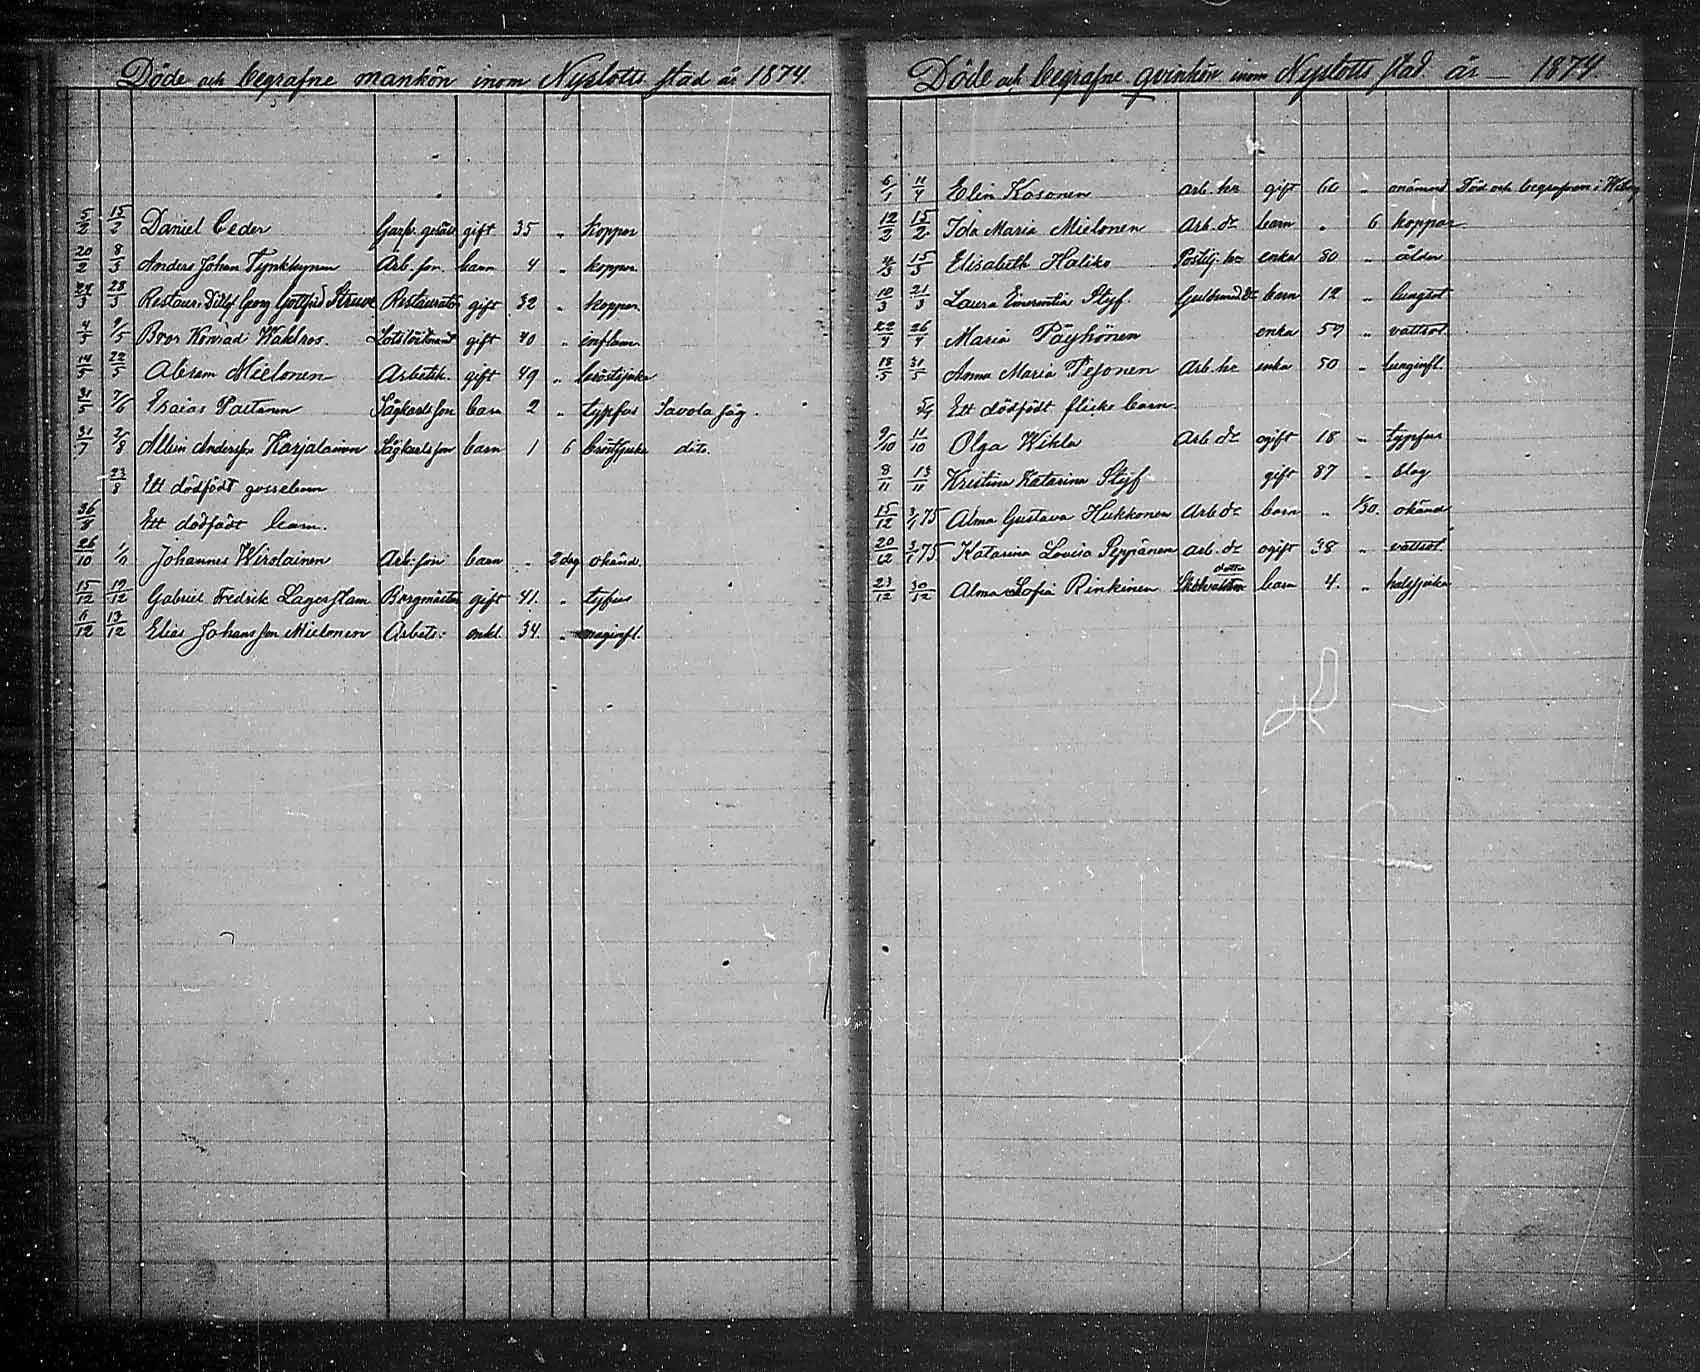 Döde och begrafne mankön inom Nyslotts stad år 1874.
5/2 15/2 Daniel Ceder Garf. gesäll gift 35 " koppor
20/2 8/3 Anders Johan Tynkkynen Arb. son barn 4 " koppor
28/3 Restaur: Ditlof Georg Gottfried Struve Restauratör gift 32 " koppor
4/5 9/5 Broor Konrad Wahlroos. gift 40 " inflam.
14/5 22/5 Abram Mielonen Arbetsk. gift 49 " bröstsjuka
31/5 7/6 Esaias Partanen Sågkarls son barn 2 " typfus Savola såg.
31/7 2/8 Albin Andersson Karjalainen Sågkarls son barn 1 6 bröstsjuka dito.
23/8 Ett dödfödt gossebarn
26/8 Ett dödfödt barn.
26/10 1/11 Johannes Wirolainen Arb: son barn " 2 dag okänd.
15/12 19/12 Gabriel Fredrik Lagerstam Borgmästar gift 41. " tyfus
6/12 13/12 Elias Johansson Mielonen Arbets: enkl. 34. " maginfl.
Döde och begrafne qvinkön inom Nyslotts stad år — 1874.
6/1 11/4 Elin Kosonen Arb. hu gift 60 " onämnd Död och begrafven i Wiborg
12/2 15/2 Ida Maria Mielonen Arb. dr barn " 6 koppor
4/3 15/3 Elisabeth Haliko Postilj. hu enka 80 " ålder
10/3 21/3 Laura Emerentia Styf. Guldsmed dr barn 12 " lungsot
22/4 26/4 Maria Päyhönen enka 59 " vattsot.
18/5 31/5 Anna Maria Pesonen Arb. hu enka 50 " lunginfl.
Ett dödfödt flicke barn.
9/10 11/10 Olga Wikla Arb. dr ogift 18 " typfus
8/11 13/11 Kristina Katarina Styf gift 87 " slag
15/12 3/1 75 Alma Gustava Hukkonen Arb. dr barn " 1/30. okänd
20/12 3/1 75 Katarina Lovisa Peppänen arb. dr ogift 38 " vattsot.
23/12 30/12 Alma Sofia Rinkinen dotter barn 4. " halssjuka